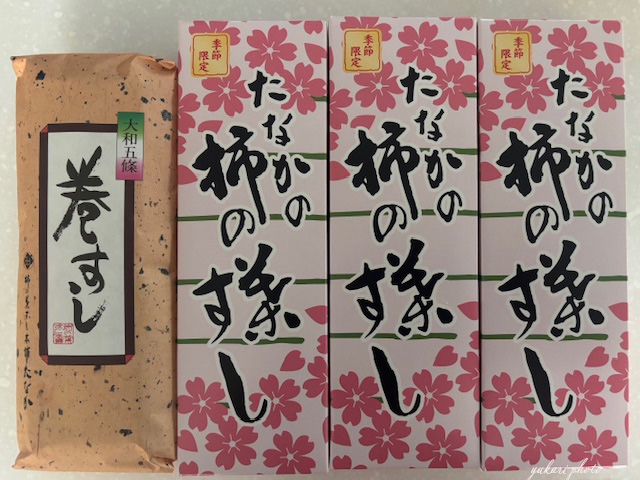 大和五條
巻すし
たなか
季節
限定
たなかの
柿の葉
すし
季節
限定
たなかの
柿の葉
すし
季節
限定
たなかの
柿の葉
すし
yukari photo